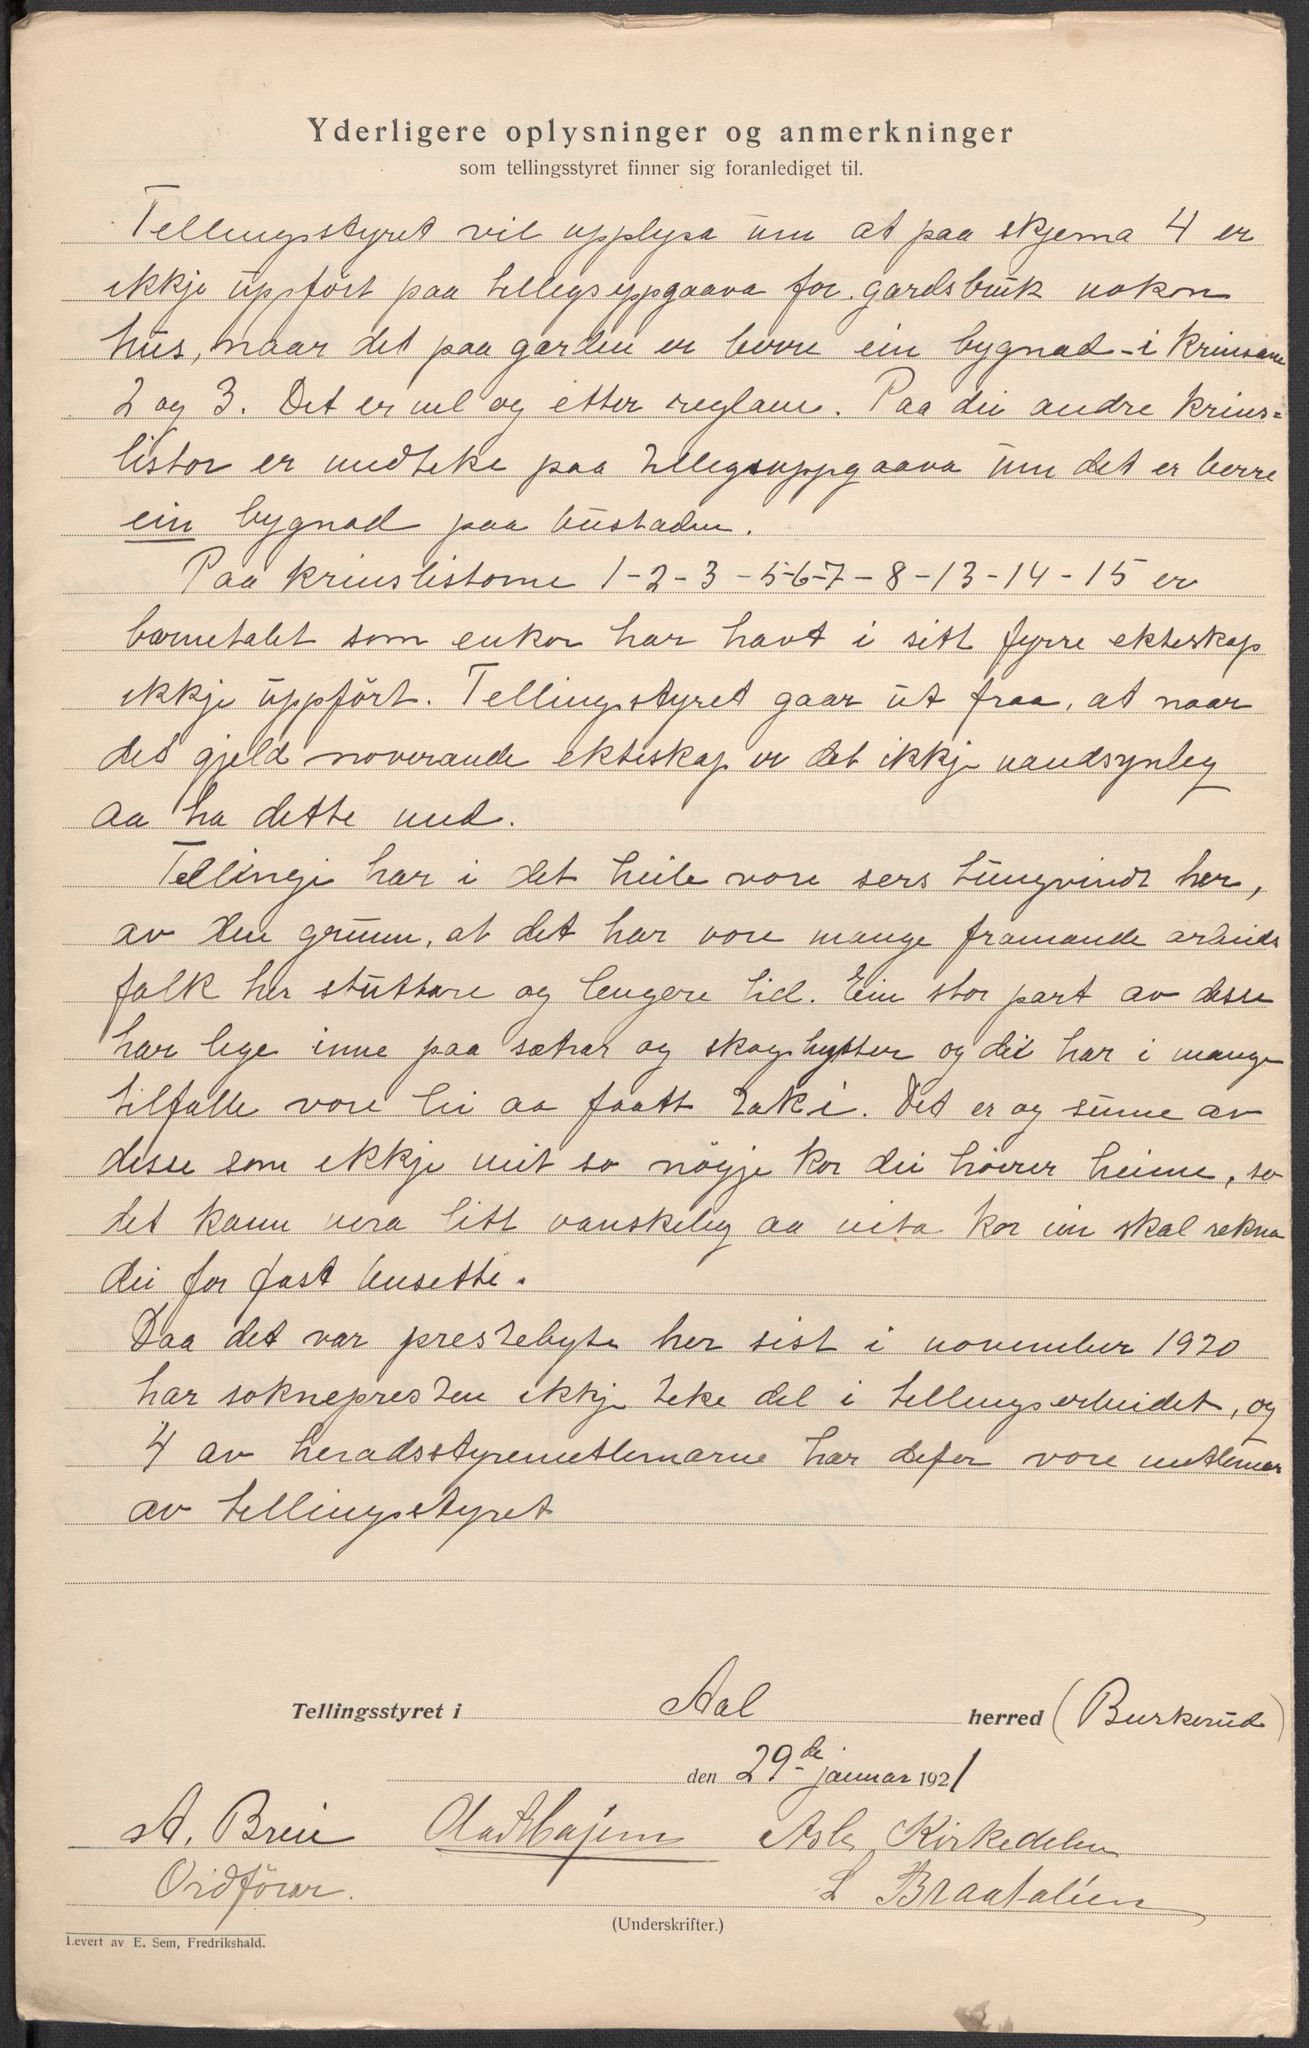 Yderligere oplysninger og anmerkninger
som tellingsstyret finner sig foranlediget til.
Tellingsstyret vil upplysa um at paa skjema 4 er
ikkje uppført paa tillegsuppgaava for gardsbruk nokon
hus, naar det paa garden er berre ein bygnad - i krinsane
2 og 3. Det er vel og etter reglane. Paa dei andre krins=
listor er medteke paa tillegsuppgaava um det er berre
ein bygnad paa bustaden.
Paa krinslistorne 1-2-3-5-6-7-8-13-14-15 er
barnetalet som enkor har havt i sitt fyrre ekteskap
ikkje uppført. Tellingsstyret gaar ut fraa, at naar
det gjeld noverande ekteskap er det ikkje naudsynleg
aa ha dette med.
Tellingi har i det heile vore sers tungvindt her,
av den grunn, at det har vore mange framande arbeids
folk her stuttare og lengere tid. Ein stor part av desse
har lege inne paa sætrar og skogshytter og dei har i mange
tilfelle vore lei aa faatt tak i. Det er og sume av
desse som ikkje veit so nøgje kor dei høirer heime, so
det kann vera litt vanskeleg aa vita kor ein skal rekna
dei for fast busette.
Daa det var prestebyte her sist i november 1920
har soknepresten ikkje teke del i tellingsarbeidet, og
4 av heradsstyremedlemarne har defor vore medlemer
av tellingsstyret
Tellingsstyret i Aal herred (Buskerud)
den 29de januar 1921
A. Brei Asle Kirkedelen
Ordførar. L Braatalien
(Underskrifter.)
Levert av E. Sem, Fredrikshald.